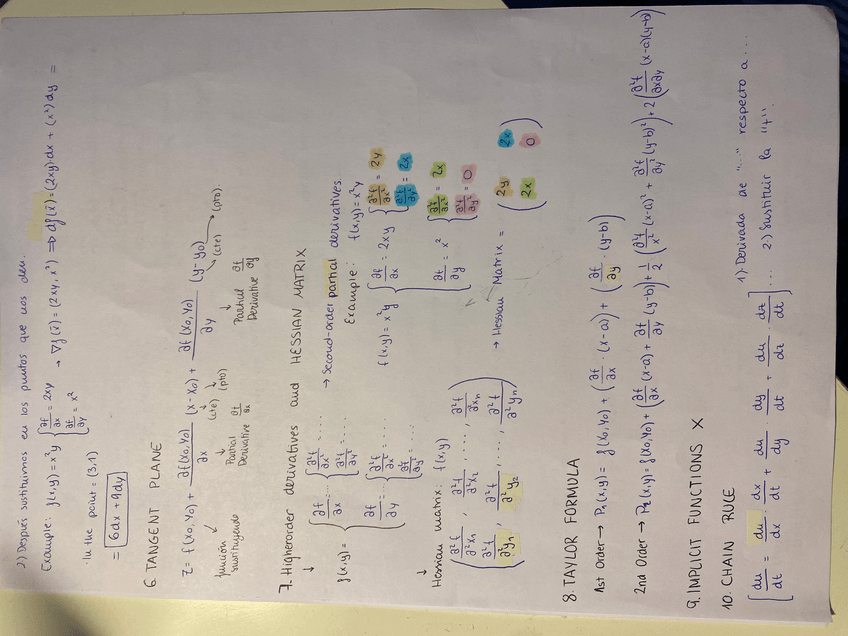 2) Después sustituimos en los puntos que nos den.
Example: f(x,y) = x²y { ∂f/∂x = 2xy → ∇f(x̄) = (2xy, x²) ⇒ df(x̄) = (2xy)·dx + (x²)dy =
∂f/∂y = x²
· In the point = (3,1)
= 6dx + 9dy
6. TANGENT PLANE
Z = f(x₀,y₀) + ∂f(x₀,y₀)/∂x (x-x₀) + ∂f(x₀,y₀)/∂y (y-y₀)
(cte) (pto) (cte) (pto).
función sustituyendo
Partial Derivative ∂f/∂x
Partial Derivative ∂f/∂y
7. Higherorder derivatives and HESSIAN MATRIX
→ Second-order partial derivatives.
Example: f(x,y) = x²y
f(x,y) = { ∂f/∂x = ... { ∂²f/∂x² = ....
∂²f/∂y² = ....
∂f/∂y = ... { ∂²f/∂x² = ....
∂²f/∂y² = ....
f(x,y) = x²y { ∂f/∂x = 2xy { ∂²f/∂x² = 2y
∂²f/∂y² = 2x
∂f/∂y = x² { ∂²f/∂x² = 2x
∂²f/∂y² = 0
Hessian matrix: f(x,y)
( ∂²f/∂²x₁ , ∂²f/∂²x₂ , ...., ∂²f/∂²xₙ
∂²f/∂²y₁ , ∂²f/∂²y₂ , ...., ∂²f/∂²yₙ )
→ Hessian Matrix = ( 2y 2x
2x 0 )
8. TAYLOR FORMULA
1st Order → P₁(x,y) = f(x₀,y₀) + (∂f/∂x · (x-a)) + (∂f/∂y · (y-b))
2nd Order → P₂(x,y) = f(x₀,y₀) + (∂f/∂x (x-a) + ∂f/∂y (y-b)) + 1/2 (∂²f/x² (x-a)² + ∂²f/∂y² (y-b)²) + 2 (∂²f/∂x∂y (x-a)(y-b)
9. IMPLICIT FUNCTIONS X
10. CHAIN RULE
[ du/dt = du/dx · dx/dt + du/dy · dy/dt + du/dz · dz/dt ] ...
1). Derivada de "..." respecto a ...
2) Sustituir la "t".